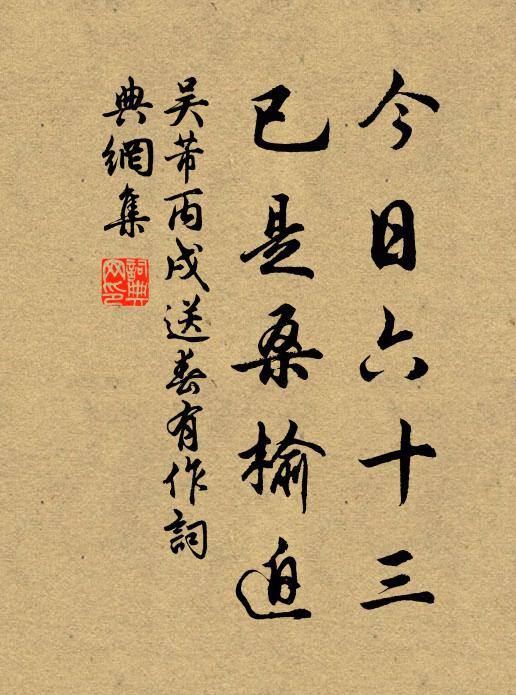 今日六十三
已是桑榆迫
吴芾丙戌送春有作詞
典網集
詞典網印